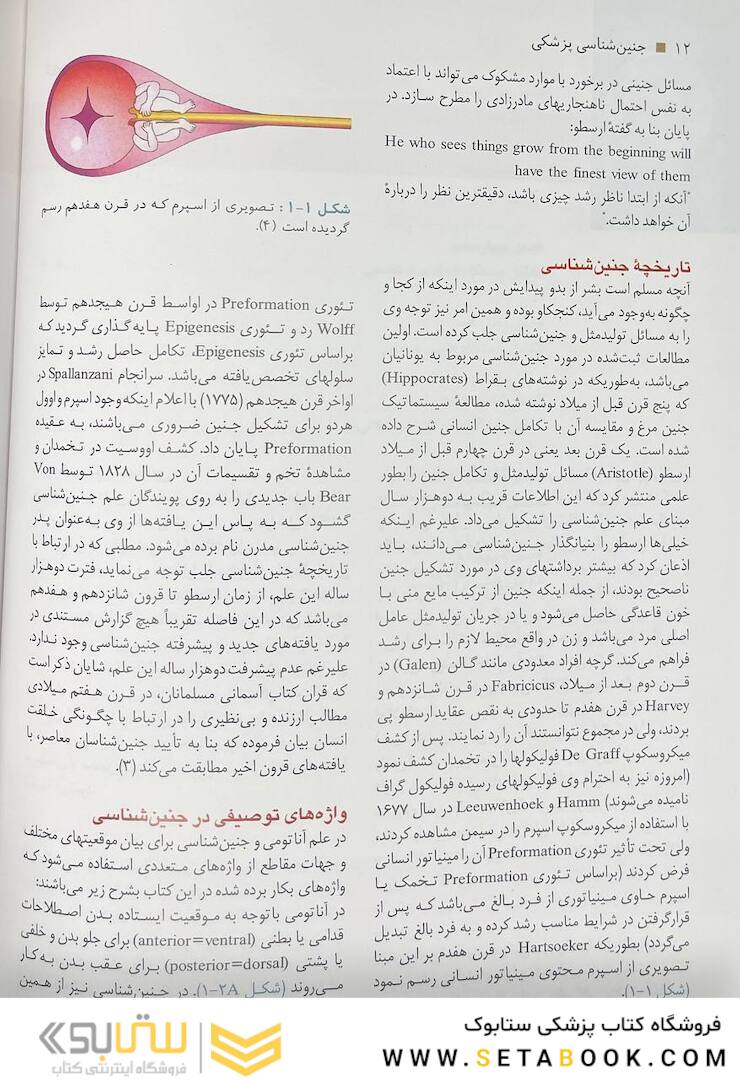 ۱۲ ■ جنین‌شناسی پزشکی
مسائل جنینی در برخورد با موارد مشکوک می‌تواند با اعتماد
به نفس احتمال ناهنجاریهای مادرزادی را مطرح سازد. در
پایان بنا به گفتهٔ ارسطو:
He who sees things grow from the beginning will
have the finest view of them
"آنکه از ابتدا ناظر رشد چیزی باشد، دقیقترین نظر را دربارهٔ
آن خواهد داشت."
تاریخچهٔ جنین‌شناسی
آنچه مسلم است بشر از بدو پیدایش در مورد اینکه از کجا و
چگونه به‌وجود می‌آید، کنجکاو بوده و همین امر نیز توجه وی
را به مسائل تولیدمثل و جنین‌شناسی جلب کرده است. اولین
مطالعات ثبت‌شده در مورد جنین‌شناسی مربوط به یونانیان
می‌باشد، به‌طوریکه در نوشته‌های بقراط (Hippocrates)
که پنج قرن قبل از میلاد نوشته شده، مطالعهٔ سیستماتیک
جنین مرغ و مقایسه آن با تکامل جنین انسانی شرح داده
شده است. یک قرن بعد یعنی در قرن چهارم قبل از میلاد
ارسطو (Aristotle) مسائل تولیدمثل و تکامل جنین را بطور
علمی منتشر کرد که این اطلاعات قریب به دوهزار سال
مبنای علم جنین‌شناسی را تشکیل می‌داد. علیرغم اینکه
خیلی‌ها ارسطو را بنیانگذار جنین‌شناسی می‌دانند، باید
اذعان کرد که بیشتر برداشتهای وی در مورد تشکیل جنین
ناصحیح بودند، از جمله اینکه جنین از ترکیب مایع منی با
خون قاعدگی حاصل می‌شود و یا در جریان تولیدمثل عامل
اصلی مرد می‌باشد و زن در واقع محیط لازم را برای رشد
فراهم می‌کند. گرچه افراد معدودی مانند گالن (Galen) در
قرن دوم بعد از میلاد، Fabricicus در قرن شانزدهم و
Harvey در قرن هفدم تا حدودی به نقص عقاید ارسطو پی
بردند، ولی در مجموع نتوانستند آن را رد نمایند. پس از کشف
میکروسکوپ De Graff فولیکولها را در تخمدان کشف نمود
(امروزه نیز به احترام وی فولیکولهای رسیده فولیکول گراف
نامیده می‌شوند) Hamm و Leeuwenhoek در سال ۱۶۷۷
با استفاده از میکروسکوپ اسپرم را در سیمن مشاهده کردند،
ولی تحت تأثیر تئوری Preformation آن را مینیاتور انسانی
فرض کردند (براساس تئوری Preformation تخمک یا
اسپرم حاوی مینیاتوری از فرد بالغ می‌باشد که پس از
قرارگرفتن در شرایط مناسب رشد کرده و به فرد بالغ تبدیل
می‌گردد) بطوریکه Hartsoeker در قرن هفدم بر این مبنا
تصویری از اسپرم محتوی مینیاتور انسانی رسم نمود
(شکل ۱-۱).
شکل ۱-۱: تصویری از اسپرم که در قرن هفدهم رسم
گردیده است (۴).
تئوری Preformation در اواسط قرن هیجدهم توسط
Wolff رد و تئوری Epigenesis پایه‌گذاری گردید که
براساس تئوری Epigenesis، تکامل حاصل رشد و تمایز
سلولهای تخصص‌یافته می‌باشد. سرانجام Spallanzani در
اواخر قرن هیجدهم (۱۷۷۵) با اعلام اینکه وجود اسپرم و اوول
هردو برای تشکیل جنین ضروری می‌باشند، به عقیده
Preformation پایان داد. کشف اووسیت در تخمدان و
مشاهدهٔ تخم و تقسیمات آن در سال ۱۸۲۸ توسط Von
Bear باب جدیدی را به روی پویندگان علم جنین‌شناسی
گشود که به پاس این یافته‌ها از وی به‌عنوان پدر
جنین‌شناسی مدرن نام برده می‌شود. مطلبی که در ارتباط با
تاریخچهٔ جنین‌شناسی جلب توجه می‌نماید، فترت دوهزار
ساله این علم، از زمان ارسطو تا قرون شانزدهم و هفدهم
می‌باشد که در این فاصله تقریباً هیچ گزارش مستندی در
مورد یافته‌های جدید و پیشرفته جنین‌شناسی وجود ندارد.
علیرغم عدم پیشرفت دوهزار ساله این علم، شایان ذکر است
که قرآن کتاب آسمانی مسلمانان، در قرن هفتم میلادی
مطالب ارزنده و بی‌نظیری را در ارتباط با چگونگی خلقت
انسان بیان فرموده که بنا به تأیید جنین‌شناسان معاصر، با
یافته‌های قرون اخیر مطابقت می‌کند (۳).
واژه‌های توصیفی در جنین‌شناسی
در علم آناتومی و جنین‌شناسی برای بیان موقعیتهای مختلف
و جهات مقاطع از واژه‌های متعددی استفاده می‌شود که
واژه‌های بکار برده شده در این کتاب بشرح زیر می‌باشند:
در آناتومی باتوجه به موقعیت ایستاده بدن اصطلاحات
قدامی یا بطنی (anterior=ventral) برای جلو بدن و خلفی
یا پشتی (posterior=dorsal) برای عقب بدن به‌کار
می‌روند (شکل ۱-۲A). در جنین‌شناسی نیز از همین
فروشگاه کتاب پزشکی ستابوک
WWW.SETABOOK.COM
ستابوک
فروشگاه اینترنتی کتاب